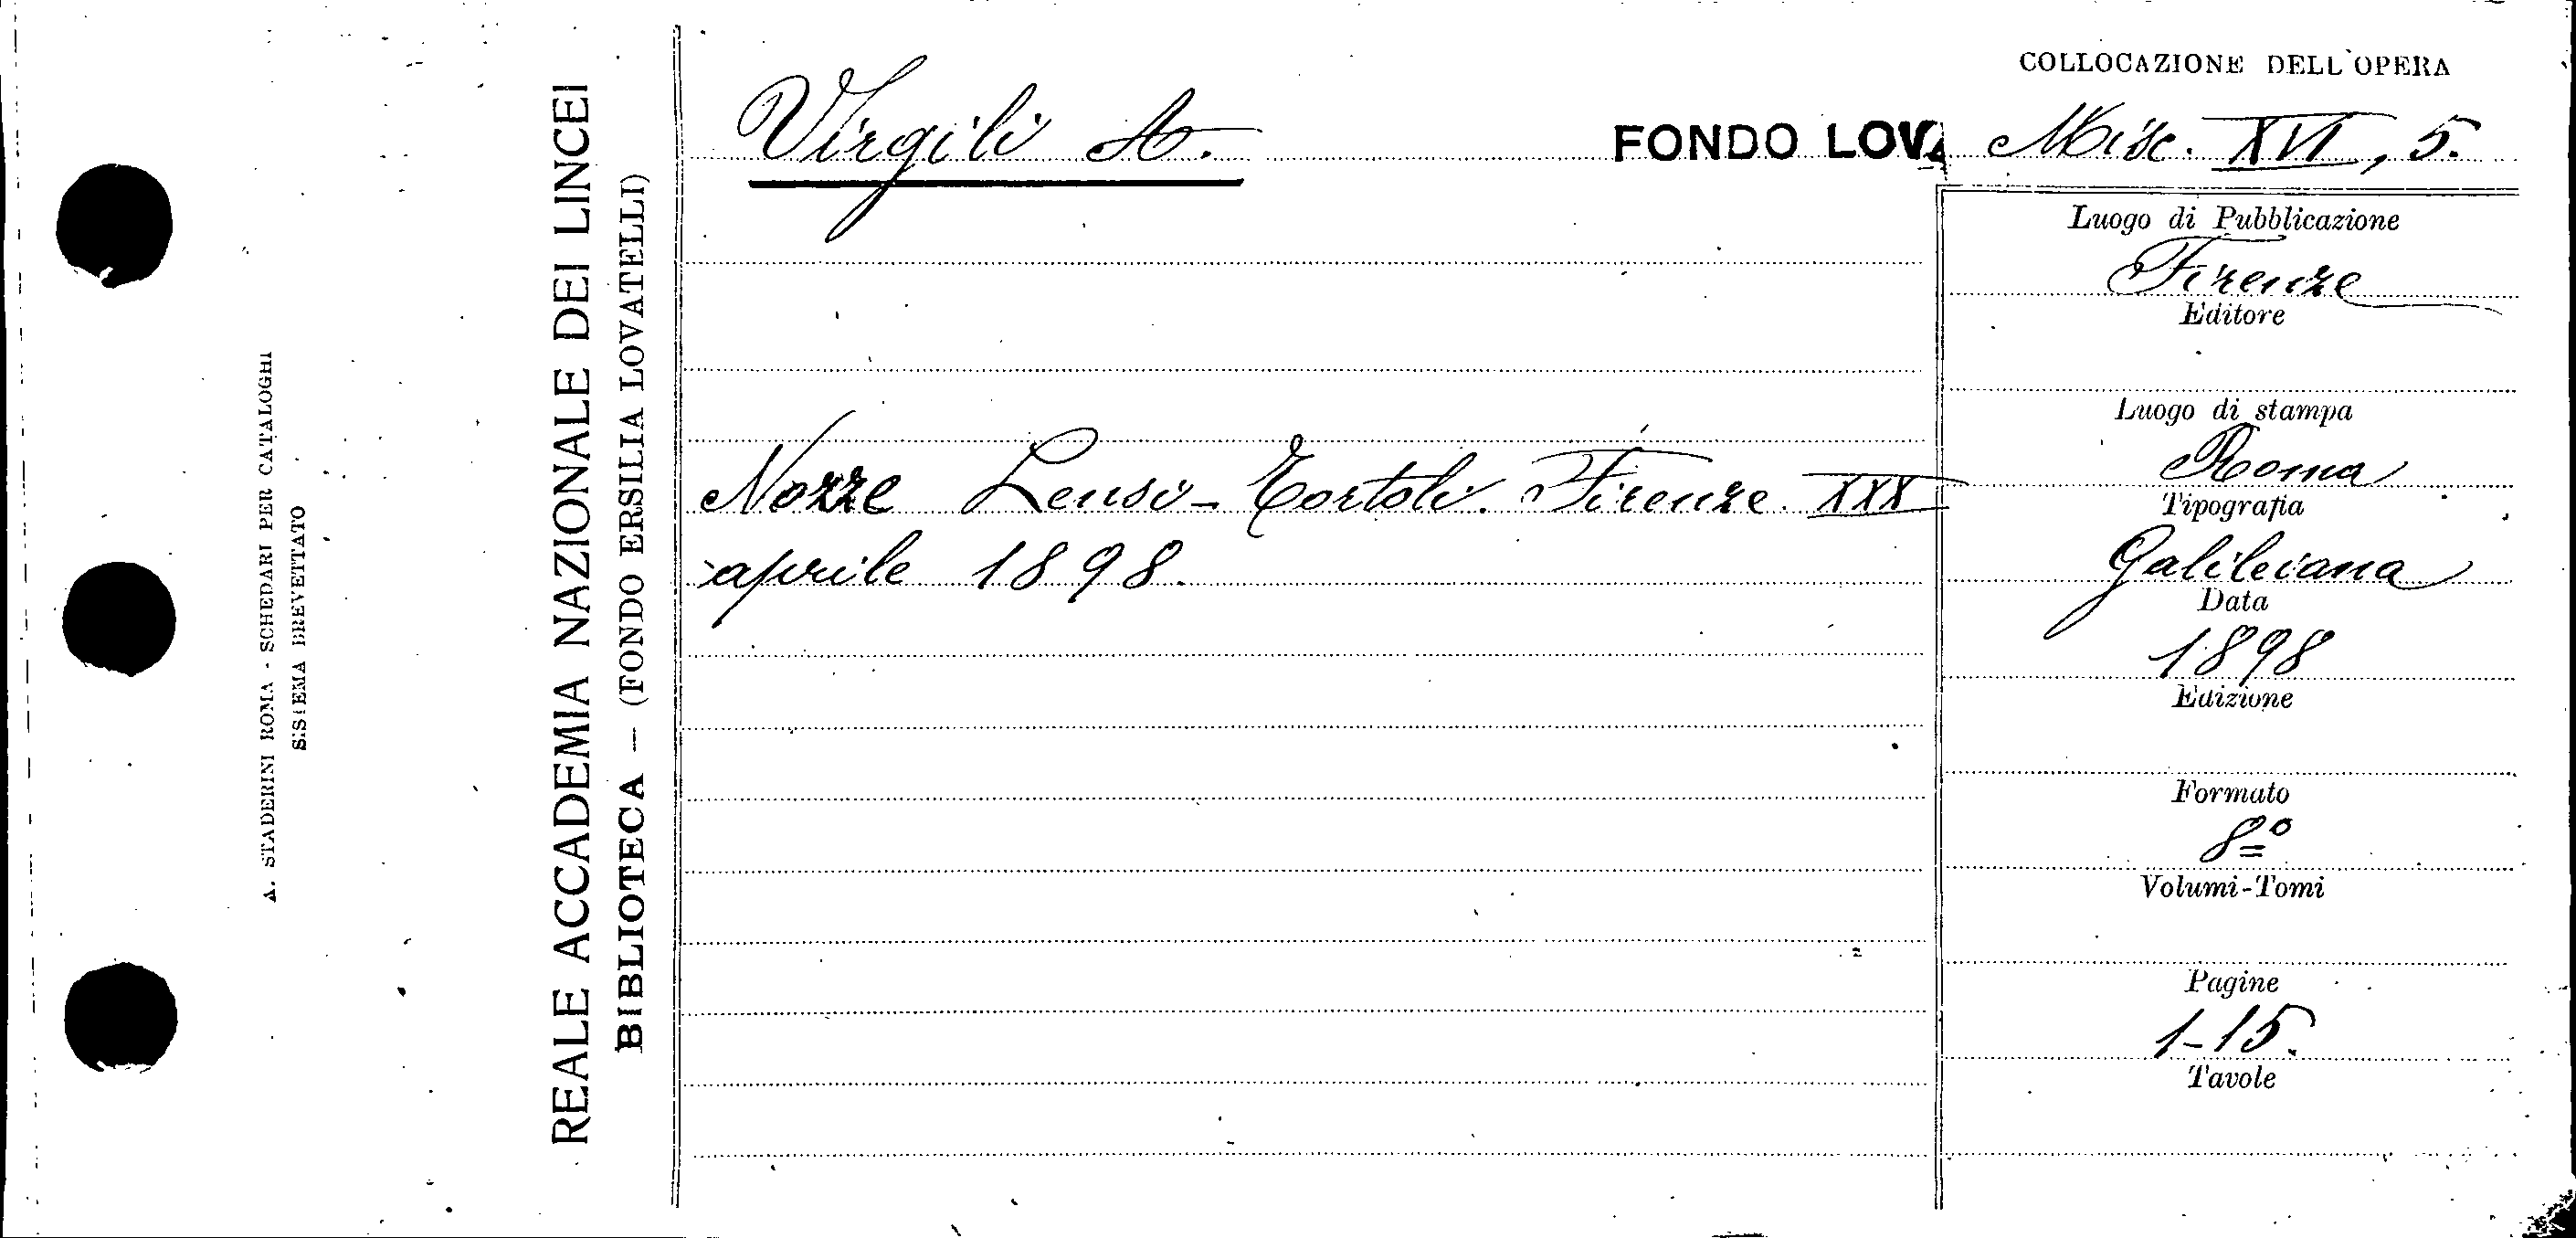 A. STADERINI ROMA - SCHEDARI PER CATALOGHI
SISTEMA BREVETTATO
REALE ACCADEMIA NAZIONALE DEI LINCEI
BIBLIOTECA — (FONDO ERSILIA LOVATELLI)
Virgili A.
FONDO LOVA
Nozze Lensi-Tortoli. Firenze. XXX
aprile 1898.
COLLOCAZIONE DELL'OPERA
Misc. XVI, 5.
Luogo di Pubblicazione
Firenze
Editore
Luogo di stampa
Roma
Tipografia
Galileiana
Data
1898
Edizione
Formato
8º
Volumi-Tomi
Pagine
1-15.
Tavole